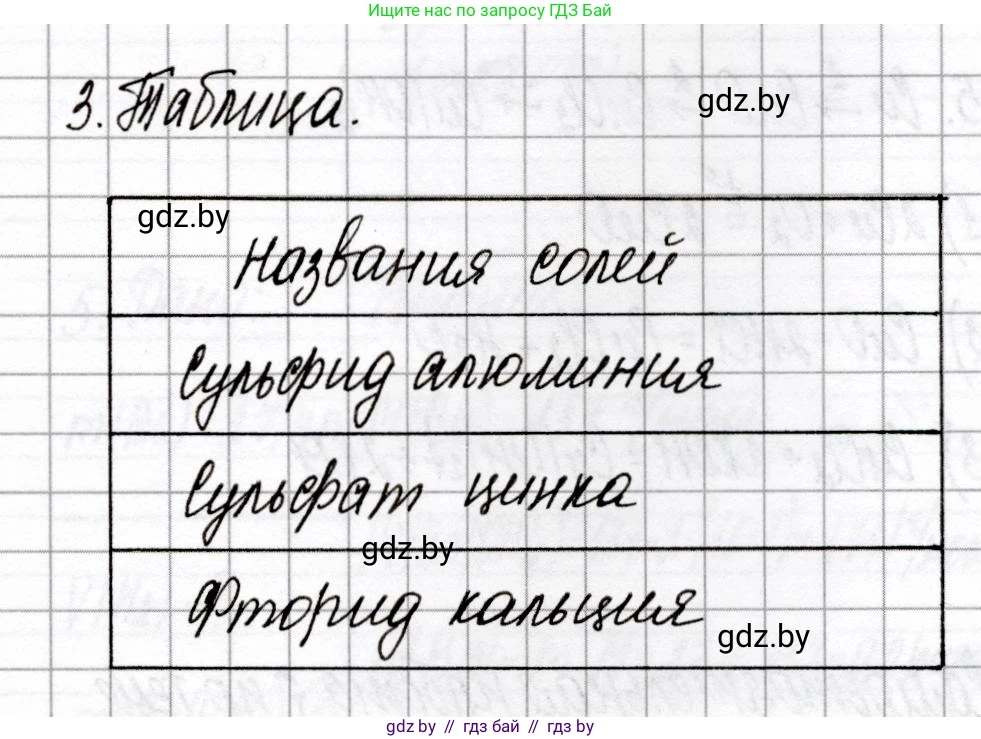 Ищите нас по запросу ГДЗ Бай
3. Таблица.
gdz.by
gdz.by
Названия солей
Сульфид алюминия
Сульфат цинка
gdz.by
Фторид кальция
gdz.by
gdz by // гдз бай // гдз by